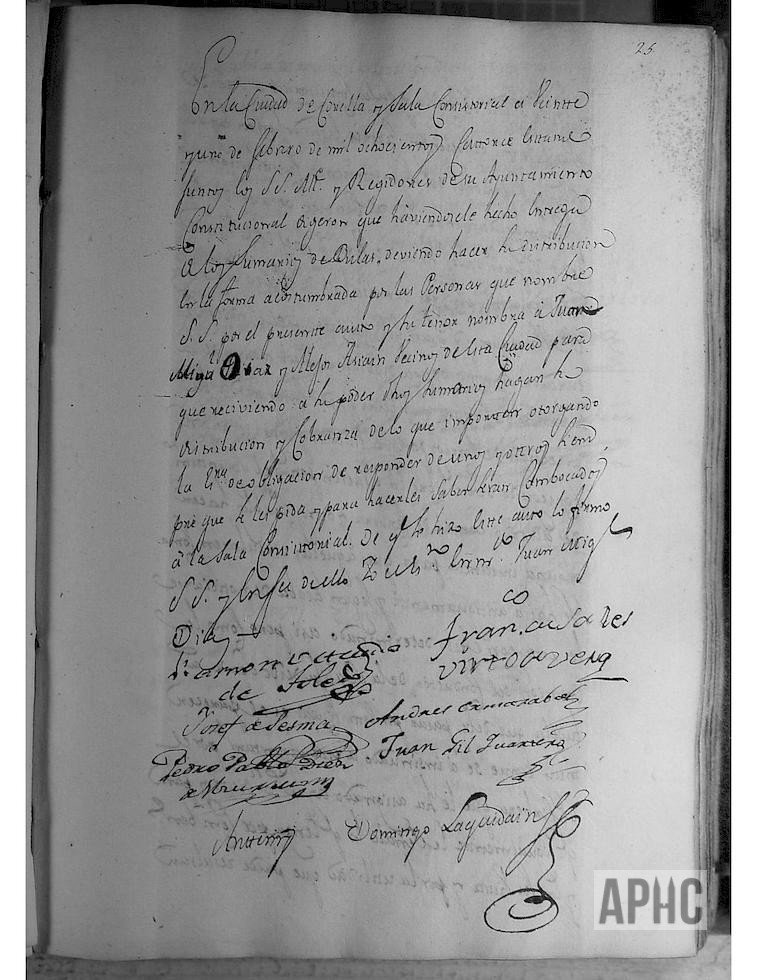 25
En la Ciudad de Corella y Sala Consistorial a Veintte
y uno de febrero de mil ochocientos Cattorce esttando
Juntos los SS. Alc. y Regidores de su Ayuntamiento
Constitucional digeron que haviendosele hecho entrega
de los Sumarios de Bulas, deviendo hacer la distribucion
en la forma acostumbrada por las Personas que nombre
S. S. por el presentte auto y su tenor nombra a Juan
Migl Diaz y Alejos Asiain Vecinos de esta Ciudad para
que reciviendo a su poder dhos Sumarios hagan la
distribucion y Cobranza de lo que importten otorgando
la Esra de obligacion de responder de unos y ottros siem
pre que se les pida, y para hacerles saber sean Combocados
á la Sala Consisttorial. De q se hizo este auto lo firmo
S S. y en fee de ello Yo el Es no Juan Migl
Diaz
Ramon
de Toledo
Franco de Sales
Virto de Vera
Josef de Sesma
Andres
Pedro Pablo
Juan Gil
Antemi Domingo Laquidain
APHC